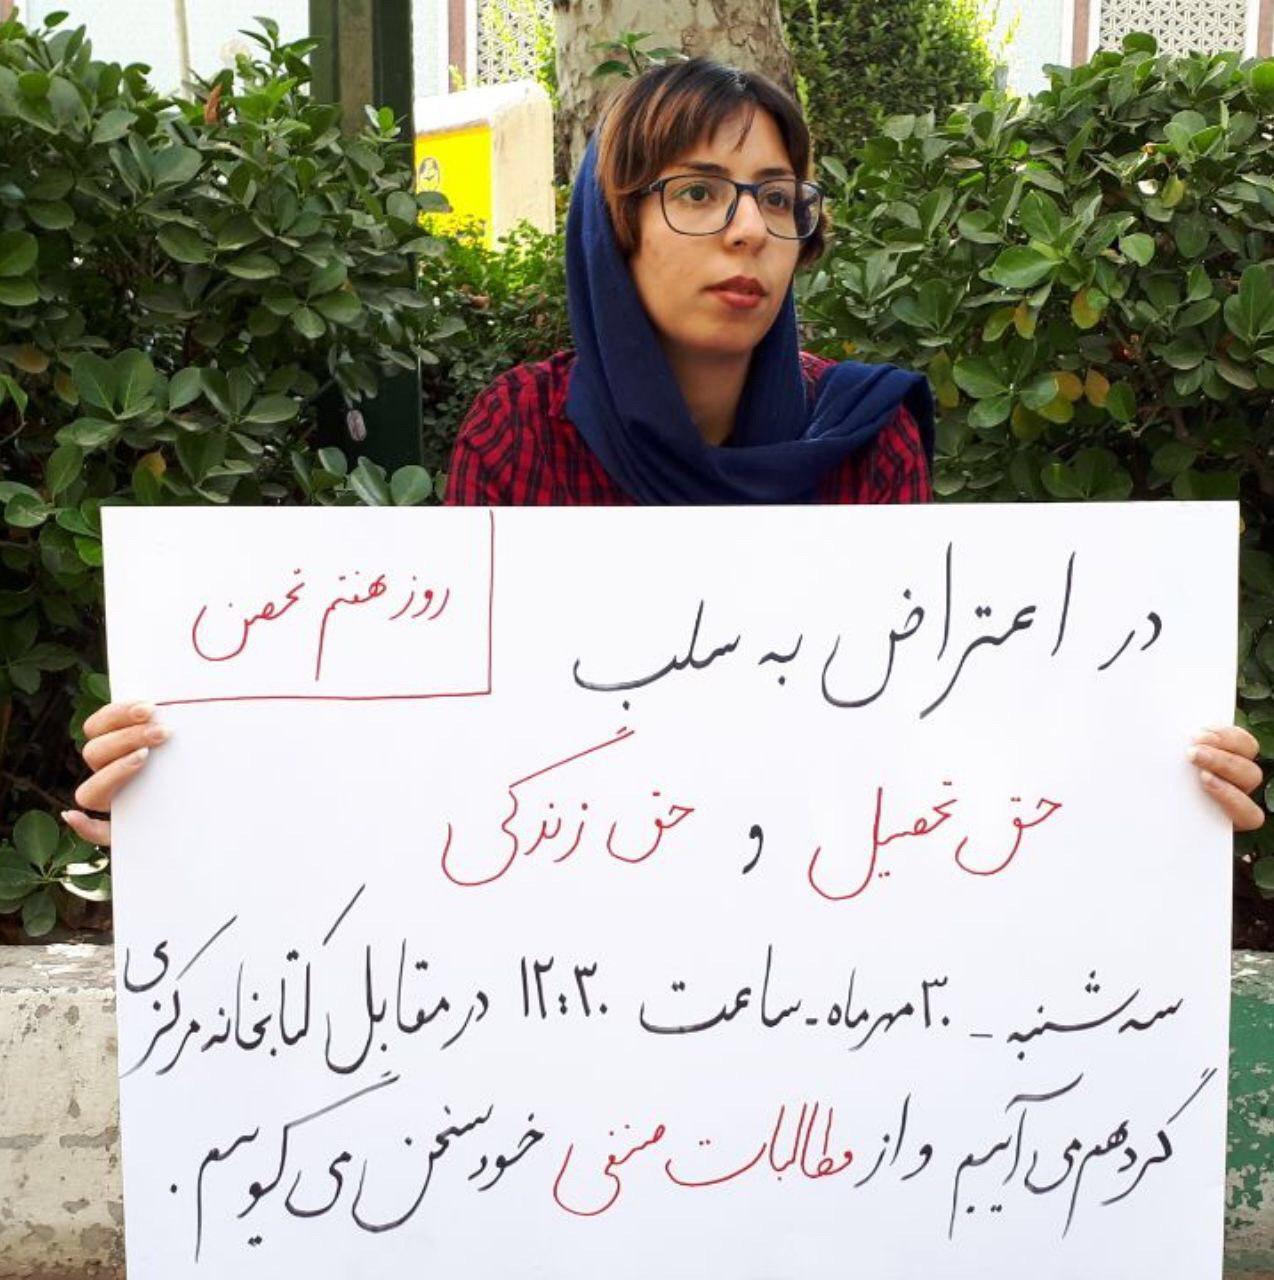 روز هفتم تحصن
در اعتراض به سلب
حق تحصیل و حق زندگی
سه شنبه - ۳۰ مهرماه - ساعت ۱۲:۳۰ در مقابل کتابخانه مرکزی
گردهم می آییم و از مطالبات صنفی خود سخن می گوییم.